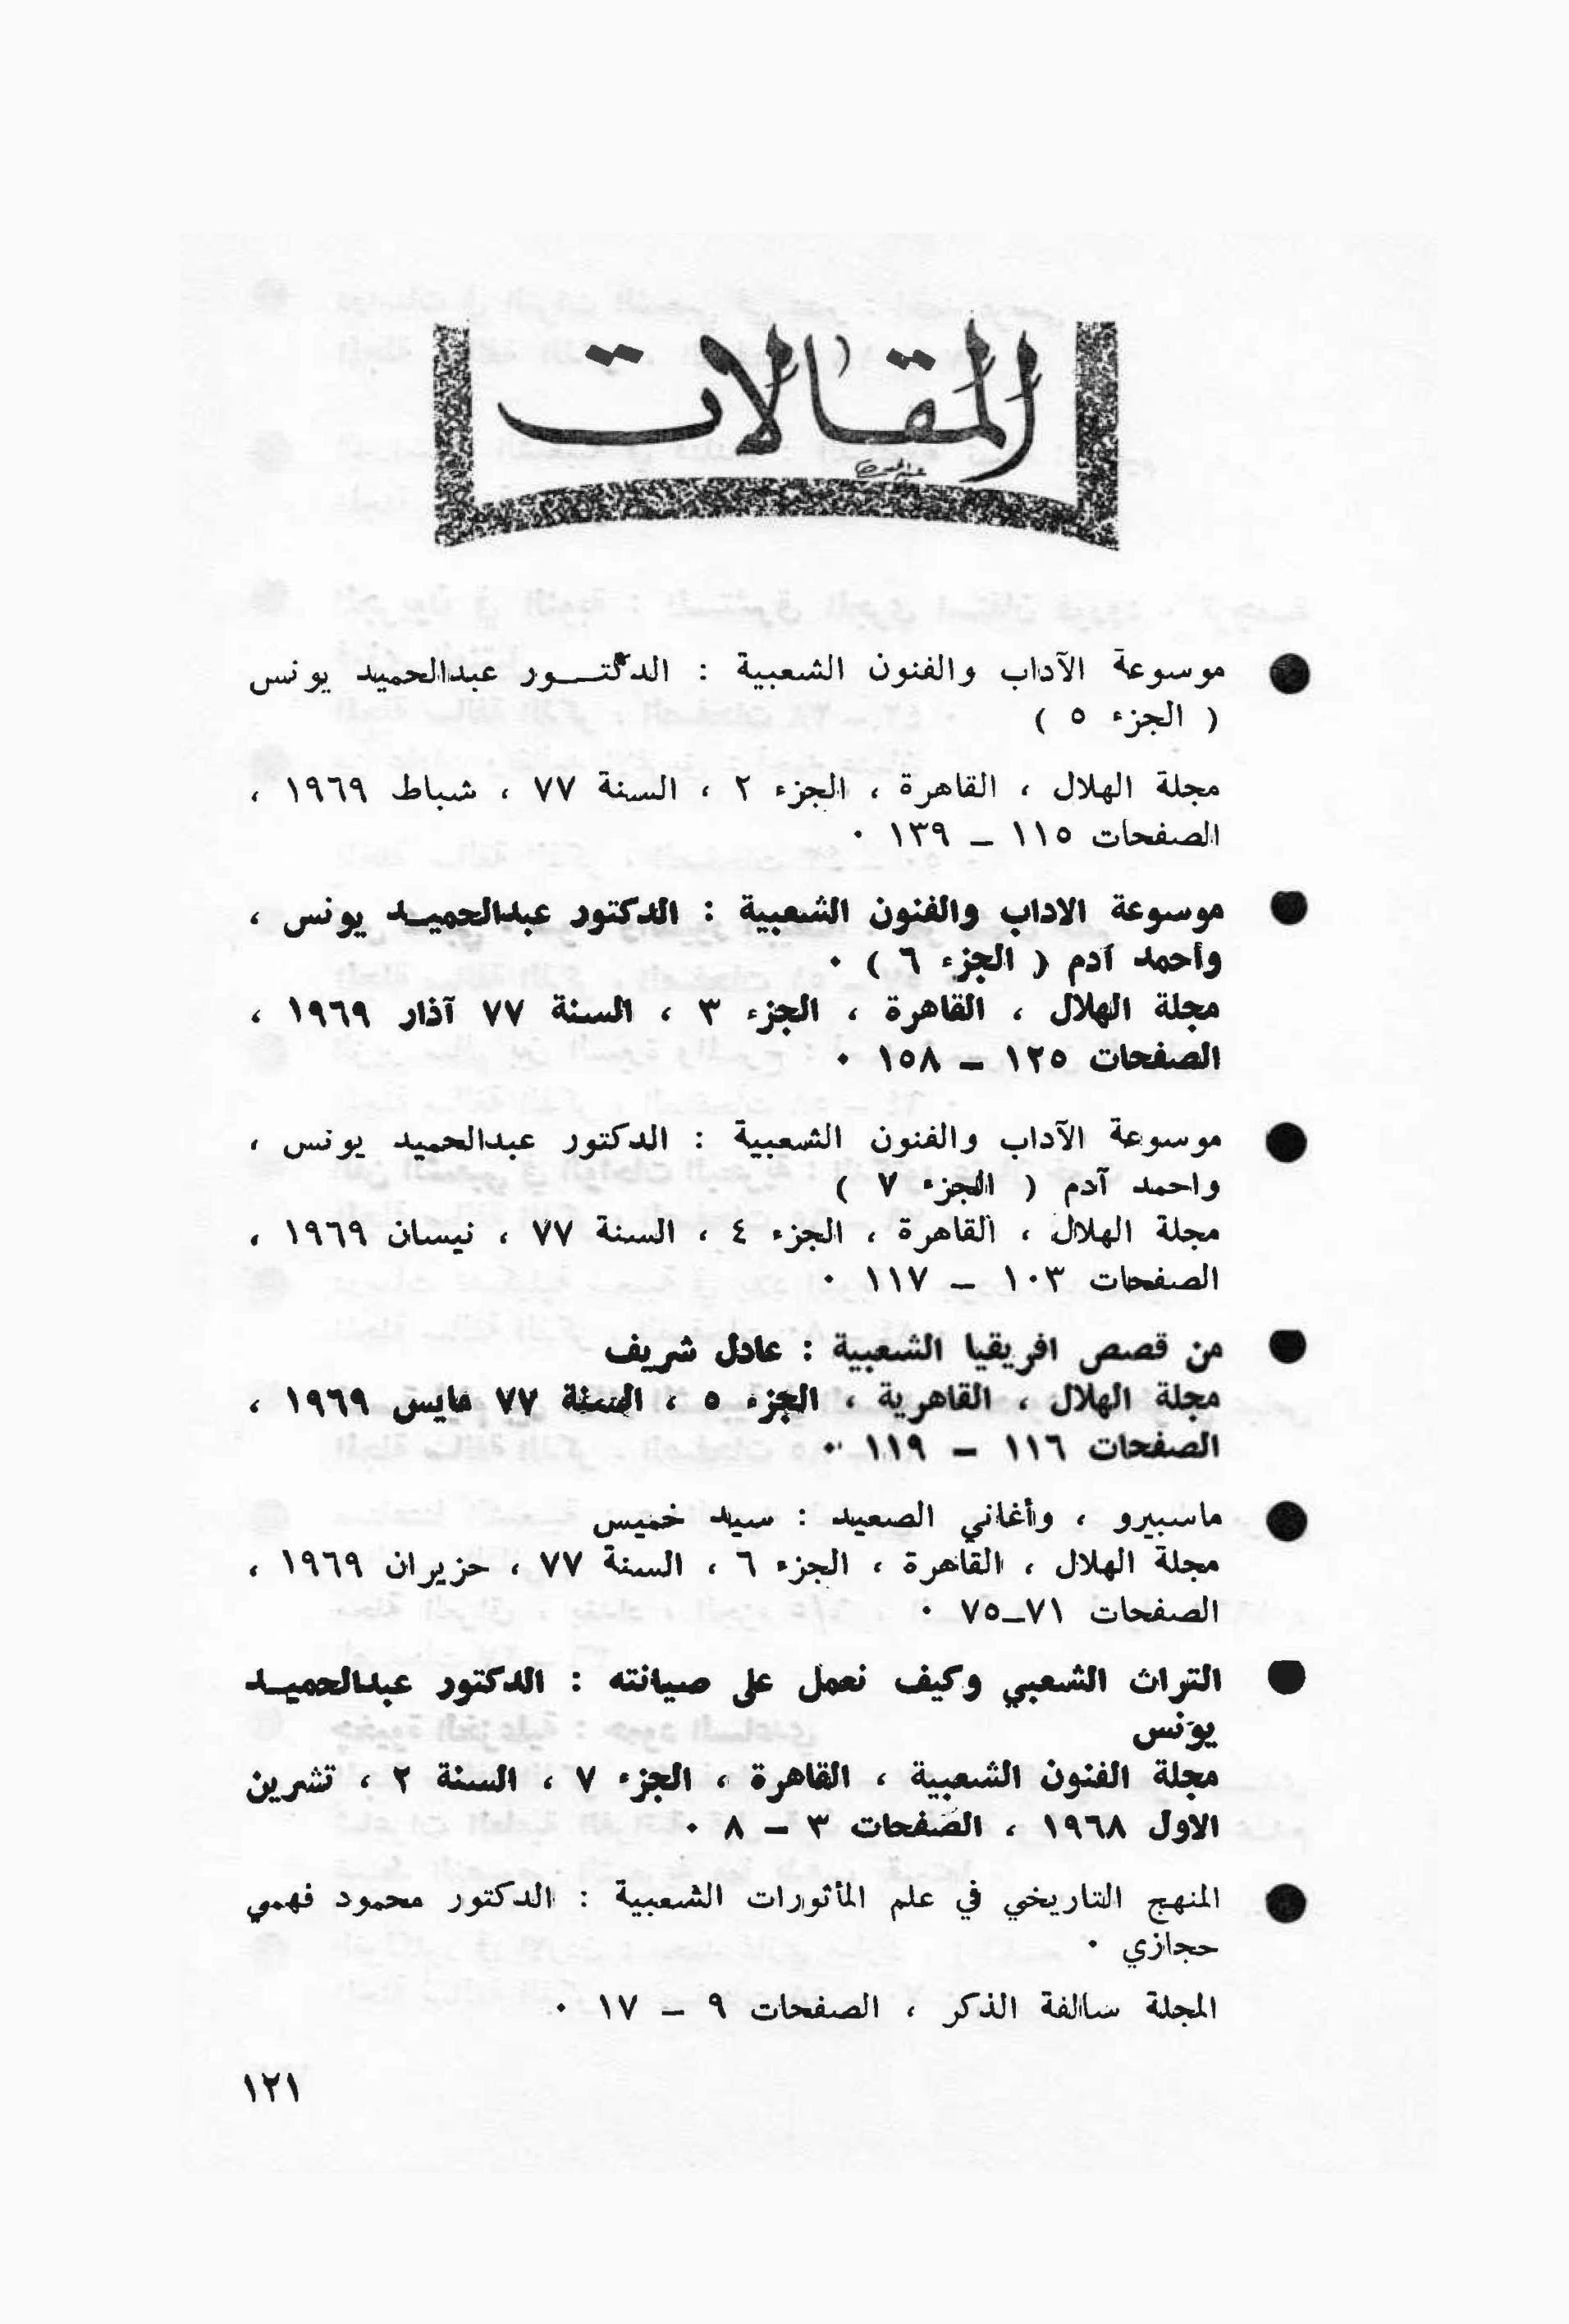 المقالات
● موسوعة الآداب والفنون الشعبية : الدكتـــور عبدالحميد يونس
( الجزء ٥ )
مجلة الهلال ، القاهرة ، الجزء ٢ ، السنة ٧٧ ، شباط ١٩٦٩ ،
الصفحات ١١٥ – ١٣٩ ٠
● موسوعة الاداب والفنون الشعبية : الدكتور عبدالحميـد يونس ،
وأحمد آدم ( الجزء ٦ ) ٠
مجلة الهلال ، القاهرة ، الجزء ٣ ، السنة ٧٧ آذار ١٩٦٩ ،
الصفحات ١٢٥ – ١٥٨ ٠
● موسوعة الآداب والفنون الشعبية : الدكتور عبدالحميد يونس ،
واحمد آدم ( الجزء ٧ )
مجلة الهلال ، القاهرة ، الجزء ٤ ، السنة ٧٧ ، نيسان ١٩٦٩ ،
الصفحات ١٠٣ – ١١٧ ٠
● من قصص افريقيا الشعبية : عادل شريف
مجلة الهلال ، القاهرية ، الجزء ٥ ، السنة ٧٧ مايس ١٩٦٩ ،
الصفحات ١١٦ – ١١٩ ٠
● ماسبيرو ، وأغاني الصعيد : سيد خميس
مجلة الهلال ، القاهرة ، الجزء ٦ ، السنة ٧٧ ، حزيران ١٩٦٩ ،
الصفحات ٧١–٧٥ ٠
● التراث الشعبي وكيف نعمل على صيانته : الدكتور عبدالحميـد
يونس
مجلة الفنون الشعبية ، القاهرة ، الجزء ٧ ، السنة ٢ ، تشرين
الاول ١٩٦٨ ، الصفحات ٣ – ٨ ٠
● المنهج التاريخي في علم المأثورات الشعبية : الدكتور محمود فهمي
حجازي ٠
المجلة سالفة الذكر ، الصفحات ٩ – ١٧ ٠
١٢١